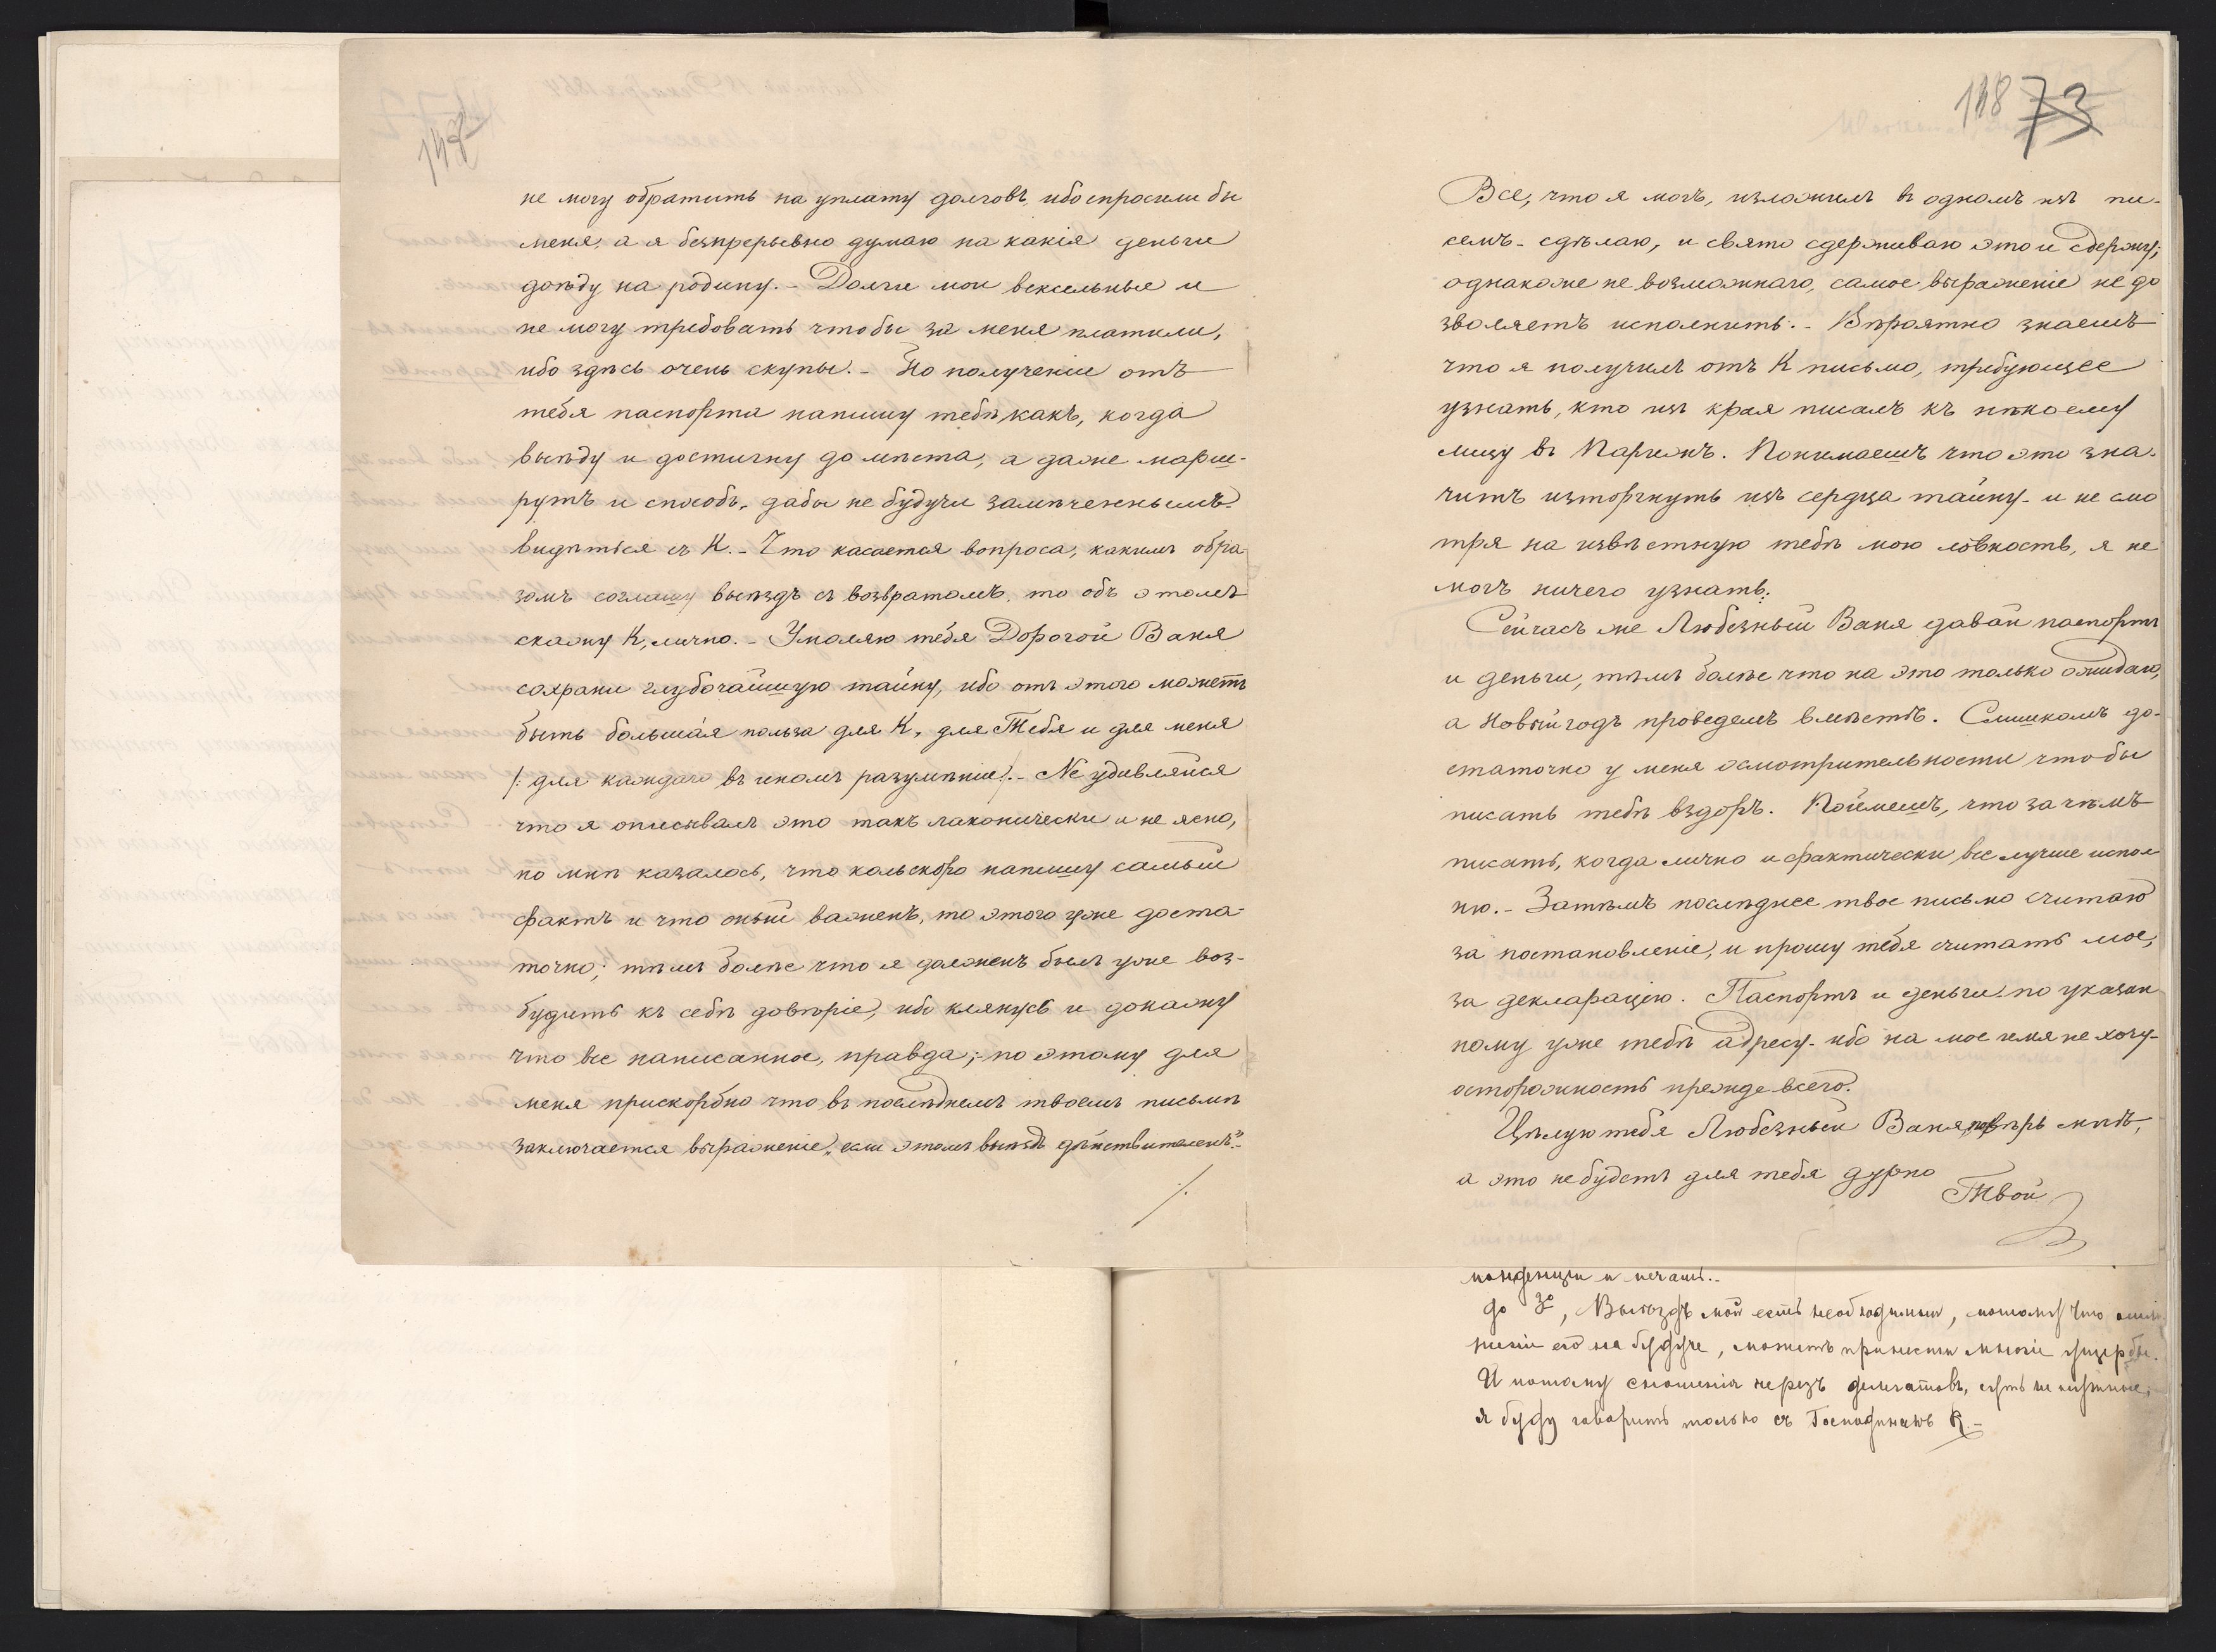 147
не могу обратить на уплату долговъ, ибо спросили бы
меня, а я безпрерывно думаю на какія деньги
доѣду на родину. – Долги мои вексельные и
не могу требовать чтобы за меня платили,
ибо здѣсь очень скупы. – По полученіи отъ
тебя паспорта напишу тебѣ, какъ, когда
выѣду и достигну до мѣста, а даже марш-
рутъ и способъ, дабы не будучи замѣченнымъ
видѣться съ К. – Что касается вопроса, какимъ обра
зомъ соглашу выѣздъ съ возвратомъ, то объ этомъ
скажу К, лично. – Умоляю тебя Дорогой Ваня
сохрани глубочайшую тайну, ибо отъ этого можетъ
быть большая польза для К, для Тебя и для меня
/: для каждаго въ иномъ разумѣніи). – Не удивляйся
что я описывалъ это такъ лаконически и не ясно,
но мнѣ казалось, что коль скоро напишу самый
фактъ и что оный важенъ, то этого уже доста-
точно; тѣмъ болѣе что я долженъ былъ уже воз-
будить къ себѣ довѣріе, ибо клянусь и докажу
что все написанное, правда; – по этому для
меня прискорбно что въ послѣднемъ твоемъ письмѣ
заключается выраженіе „если этотъ выѣздъ дѣйствителенъ“ –
/.
118 73
Все, что я могъ, изложилъ въ одномъ изъ пи-
семъ – сдѣлаю, и свято сдерживаю это и сдержу;
однакоже не возможнаго, самое выраженіе не до
зволяетъ исполнить. – Вѣроятно знаешь
что я получилъ отъ К письмо, требующее
узнать, кто изъ края писалъ къ нѣкоему
лицу въ Парижѣ. Понимаешь что это зна-
читъ изторгнуть изъ сердца тайну – и не смо
тря на извѣстную тебѣ мою ловкость, я не
могъ ничего узнать.
Сейчасъ же Любезный Ваня давай паспортъ
и деньги, тѣмъ болѣе что на это только ожидаю,
а Новый годъ проведемъ вмѣстѣ. Слишкомъ до-
статочно у меня осмотрительности чтобы
писать тебѣ вздоръ. Поймешь, что зачѣмъ
писать, когда лично и фактически все лучше испол
ню. – Затѣмъ послѣднее твое письмо считаю
за постановленіе, и прошу тебя считать мое,
за декларацію. Паспортъ и деньги по указан
ному уже тебѣ адресу – ибо на мое имя не хочу –
осторожность прежде всего.
Цѣлую тебя Любезный Ваня, повѣрь мнѣ,
а это не будетъ для тебя дурно
Твой
понденціи и печать. –
до 3º, Выѣздъ мой есть необходимый, потому что
его на будуче, можетъ принести многіе ущербы.
И потому сношенія черезъ делегатовъ, суть не нужные;
я буду говорить только съ Господиномъ К. –